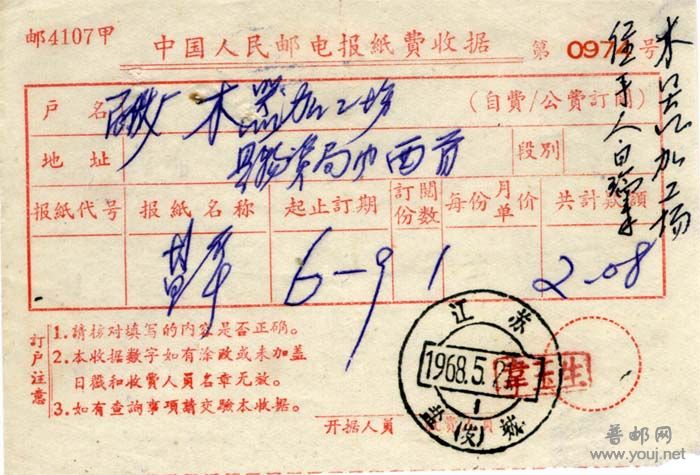 邮4107甲
中国人民邮电报紙費收据
第 0974 号
户名 木器加工场 (自費/公費訂閱)
地址 县物資局巾西首 段別
报紙代号 报紙名称 起止訂期 訂閱份数 每份月单价 共計款額
6-9 1 2.08
訂户注意
1.請核对填写的内容是否正确。
2.本收据数字如有涂改或未加盖
日戳和收費人員名章无效。
3.如有查詢事項請交驗本收据。
开据人員
江苏
1968.5.2
1
盐城
木器加工场
经手人白
普邮网
www.youj.net